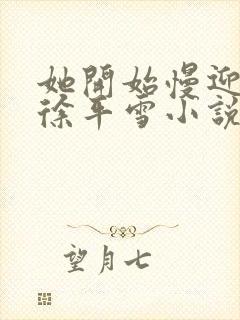 她開始慢迎
徐平雪小說
望月七